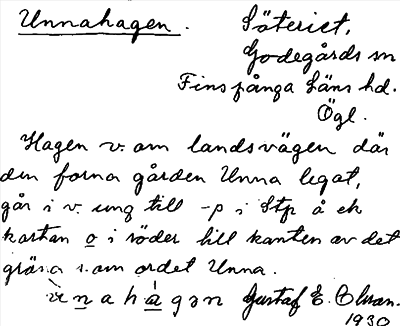 Unnahagen.
Säteriet,
Godegårds sn
Finspånga Läns hd.
Ögl.
Hagen v. om landsvägen där
den forna gården Unna legat,
går i v. ung till -p i Stp å ek
kartan o i söder till kanten av det
gröna s. om ordet Unna.
ùnahágən Gustaf E. Olsson.
1930